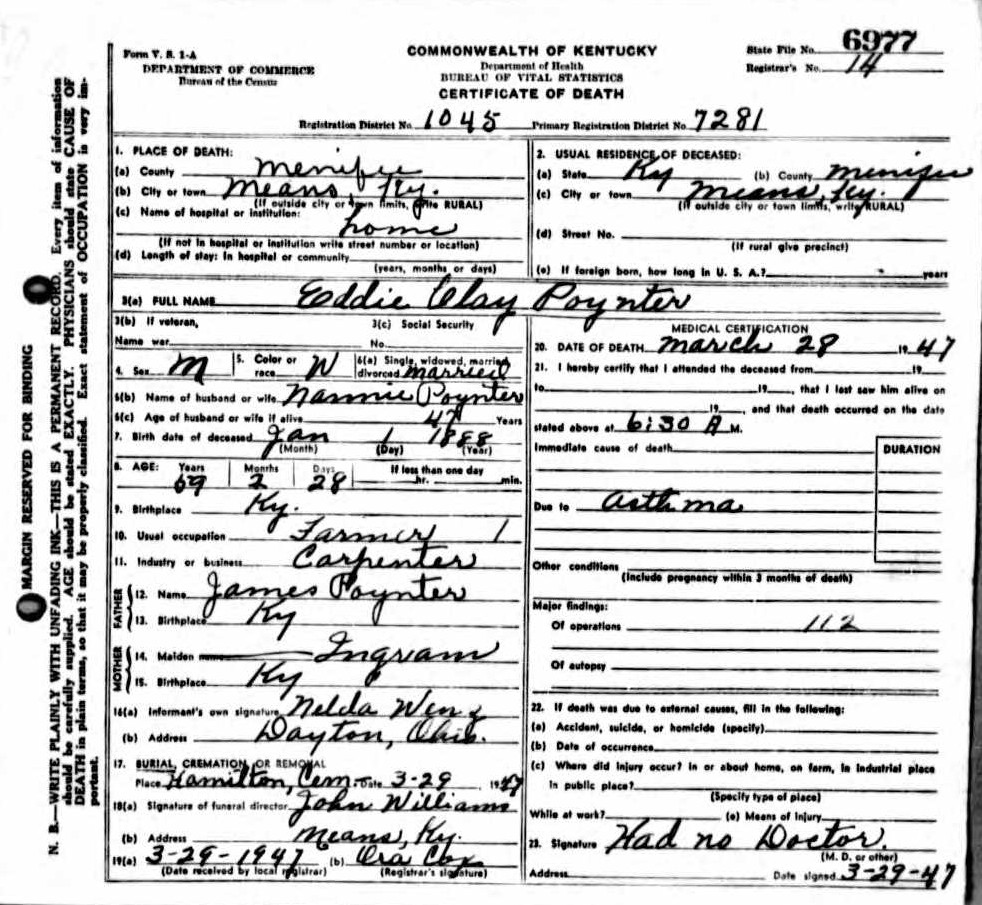 Form V. S. 1-A
DEPARTMENT OF COMMERCE
Bureau of the Census
COMMONWEALTH OF KENTUCKY
Department of Health
BUREAU OF VITAL STATISTICS
CERTIFICATE OF DEATH
State File No. 6977
Registrar's No. 14
Registration District No. 1045 Primary Registration District No. 7281
MARGIN RESERVED FOR BINDING
N. B.—WRITE PLAINLY WITH UNFADING INK—THIS IS A PERMANENT RECORD. Every item of information
should be carefully supplied. AGE should be stated EXACTLY. PHYSICIANS should state CAUSE OF
DEATH in plain terms, so that it may be properly classified. Exact statement of OCCUPATION is very im-
portant.
1. PLACE OF DEATH:
(a) County Menifee
(b) City or town Means, Ky.
(If outside city or town limits, write RURAL)
(c) Name of hospital or institution:
home
(If not in hospital or institution write street number or location)
(d) Length of stay: In hospital or community
(years, months or days)
2. USUAL RESIDENCE OF DECEASED:
(a) State Ky (b) County Menifee
(c) City or town Means, Ky.
(If outside city or town limits, write RURAL)
(d) Street No.
(If rural give precinct)
(e) If foreign born, how long in U. S. A.? years
3(a) FULL NAME Eddie Clay Poynter
3(b) If veteran, 3(c) Social Security
Name war No.
4. Sex M 5. Color or race W 6(a) Single, widowed, married, divorced married
6(b) Name of husband or wife Nannie Poynter
6(c) Age of husband or wife if alive 47 Years
7. Birth date of deceased Jan 1 1888
(Month) (Day) (Year)
8. AGE: Years Months Days If less than one day
69 2 28 hr. min.
9. Birthplace Ky.
10. Usual occupation Farmer 1
11. Industry or business Carpenter
FATHER
12. Name James Poynter
13. Birthplace Ky
MOTHER
14. Maiden name Ingram
15. Birthplace Ky
16(a) Informant's own signature Nelda Wenz
(b) Address Dayton, Ohio.
17. BURIAL, CREMATION, OR REMOVAL
Place Hamilton, Cem. Date 3-29 1947
18(a) Signature of funeral director John Williams
(b) Address Means, Ky.
19(a) 3-29-1947 (b) Ora Cox
(Date received by local registrar) (Registrar's signature)
MEDICAL CERTIFICATION
20. DATE OF DEATH March 28 1947
21. I hereby certify that I attended the deceased from 19
to 19, that I last saw him alive on
19, and that death occurred on the date
stated above at 6:30 A M.
Immediate cause of death DURATION
Due to asthma
Other conditions
(Include pregnancy within 3 months of death)
Major findings:
Of operations 112
Of autopsy
22. If death was due to external causes, fill in the following:
(a) Accident, suicide, or homicide (specify)
(b) Date of occurrence
(c) Where did injury occur? In or about home, on farm, in industrial place
in public place?
(Specify type of place)
While at work? (e) Means of Injury
23. Signature Had no Doctor.
(M. D. or other)
Address Date signed 3-29-47